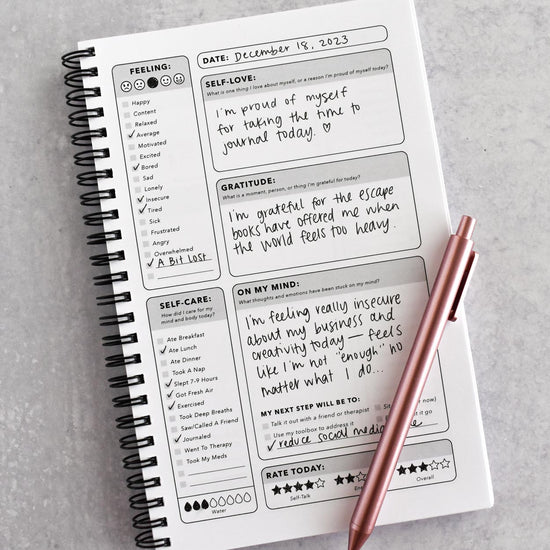 FEELING:
Happy
Content
Relaxed
Average
Motivated
Excited
Bored
Sad
Lonely
Insecure
Tired
Sick
Frustrated
Angry
Overwhelmed
A Bit Lost
SELF-CARE:
How did I care for my
mind and body today?
Ate Breakfast
Ate Lunch
Ate Dinner
Took A Nap
Slept 7-9 Hours
Got Fresh Air
Exercised
Took Deep Breaths
Saw/Called A Friend
Journaled
Went To Therapy
Took My Meds
Water
DATE: December 18, 2023
SELF-LOVE:
What is one thing I love about myself, or a reason I'm proud of myself today?
I'm proud of myself
for taking the time to
journal today. ♡
GRATITUDE:
What is a moment, person, or thing I'm grateful for today?
I'm grateful for the escape
books have offered me when
the world feels too heavy.
ON MY MIND:
What thoughts and emotions have been stuck on my mind?
I'm feeling really insecure
about my business and
creativity today — feels
like I'm not "enough" no
matter what I do...
MY NEXT STEP WILL BE TO:
Talk it out with a friend or therapist
Sit now)
Use my toolbox to address it
it go
reduce social media
RATE TODAY:
Self-Talk
Overall